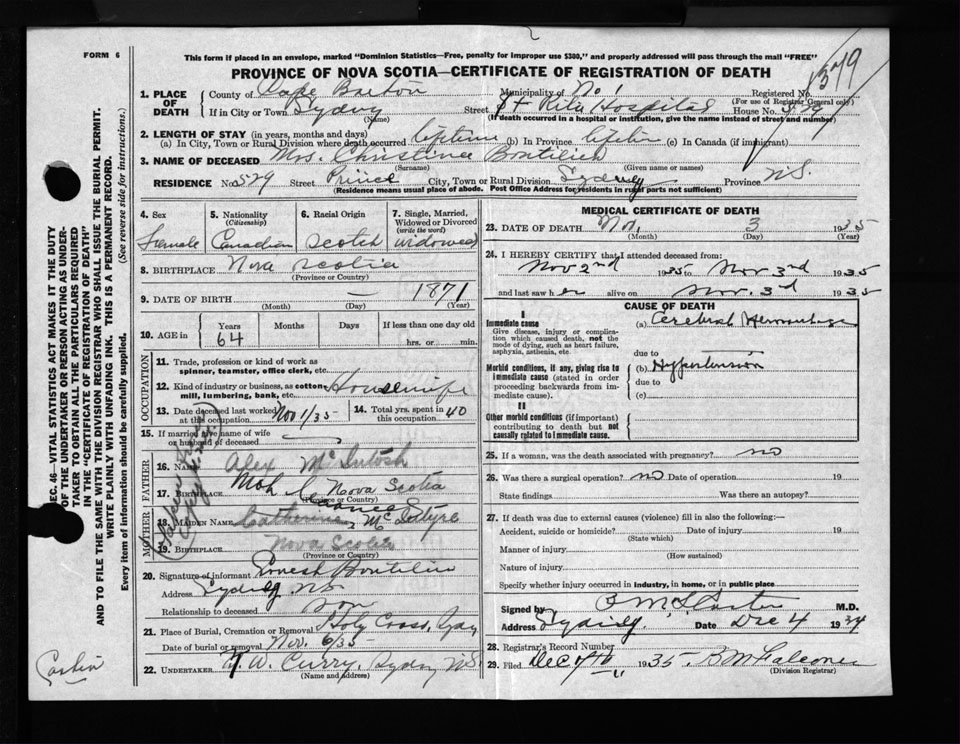 FORM 6
This form if placed in an envelope, marked "Dominion Statistics—Free, penalty for improper use $300," and properly addressed will pass through the mail "FREE"
PROVINCE OF NOVA SCOTIA—CERTIFICATE OF REGISTRATION OF DEATH
1. PLACE OF DEATH County of Cape Breton Municipality of No 1 Registered No.
(For use of Registrar General only)
If in City or Town Sydney Street St Rita Hospital House No.
(Name) (If death occurred in a hospital or institution, give the name instead of street and number)
2. LENGTH OF STAY (in years, months and days)
(a) In City, Town or Rural Division where death occurred lifetime (b) In Province lifetime (c) In Canada (if immigrant)
3. NAME OF DECEASED Mrs. Christina
(Surname) (Given name or names)
RESIDENCE No. 529 Street Prince City, Town or Rural Division Sydney Province N.S.
(Residence means usual place of abode. Post Office Address for residents in rural parts not sufficient)
4. Sex Female
5. Nationality (Citizenship) Canadian
6. Racial Origin Scotch
7. Single, Married, Widowed or Divorced (write the word) widowed
8. BIRTHPLACE Nova Scotia
(Province or Country)
9. DATE OF BIRTH — 1871
(Month) (Day) (Year)
10. AGE in Years 64 Months Days If less than one day old hrs. or min.
OCCUPATION
11. Trade, profession or kind of work as spinner, teamster, office clerk, etc.
12. Kind of industry or business, as cotton-mill, lumbering, bank, etc. Housewife
13. Date deceased last worked at this occupation Nov 1/35 14. Total yrs. spent in this occupation 40
15. If married give name of wife or husband of deceased
FATHER
16. Name Alex McIntosh
17. Birthplace Nova Scotia
(Province or Country)
MOTHER
18. Maiden Name Catherine
19. Birthplace Nova Scotia
(Province or Country)
20. Signature of informant Ernest
Address Sydney NS
Relationship to deceased Son
21. Place of Burial, Cremation or Removal Holy Cross,
Date of burial or removal Nov. 6/35
22. UNDERTAKER Curry, Sydney N.S.
(Name and Address)
MEDICAL CERTIFICATE OF DEATH
23. DATE OF DEATH Nov. 3 1935
(Month) (Day) (Year)
24. I HEREBY CERTIFY that I attended deceased from:
Nov 2nd 1935 to Nov 3rd 1935
and last saw her alive on Nov. 3rd 1935
CAUSE OF DEATH
I
Immediate cause
Give disease, injury or complication which caused death, not the mode of dying, such as heart failure, asphyxia, asthenia, etc.
(a) Cerebral Hemorrhage
due to
Morbid conditions, if any, giving rise to immediate cause (stated in order proceeding backwards from immediate cause).
(b) Hypertension
due to
(c)
II
Other morbid conditions (if important) contributing to death but not causally related to immediate cause.
25. If a woman, was the death associated with pregnancy? no
26. Was there a surgical operation? no Date of operation 19
State findings Was there an autopsy?
27. If death was due to external causes (violence) fill in also the following:—
Accident, suicide or homicide? Date of injury 19
(State which)
Manner of injury
(How sustained)
Nature of injury
Specify whether injury occurred in industry, in home, or in public place
Signed by M.D.
Address Sydney Date Dec 4 1934
28. Registrar's Record Number
29. Filed Dec 1935
(Division Registrar)
SEC. 46—VITAL STATISTICS ACT MAKES IT THE DUTY
OF THE UNDERTAKER OR PERSON ACTING AS UNDER-
TAKER TO OBTAIN ALL THE PARTICULARS REQUIRED
IN THE "CERTIFICATE OF REGISTRATION OF DEATH"
AND TO FILE THE SAME WITH THE DIVISION REGISTRAR WHO SHALL ISSUE THE BURIAL PERMIT.
WRITE PLAINLY WITH UNFADING INK. THIS IS A PERMANENT RECORD.
Every item of information should be carefully supplied. (See reverse side for instructions.)